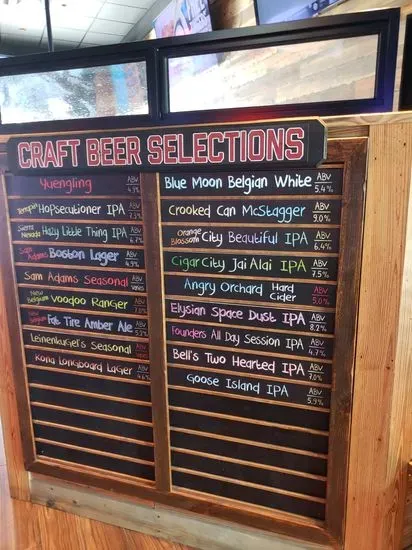 CRAFT BEER SELECTIONS
Yuengling ABV 4.5%
Terrapin Hopsecutioner IPA ABV 7.3%
Sierra Nevada Hazy Little Thing IPA ABV 6.7%
Sam Adams Boston Lager ABV 4.9%
Sam Adams Seasonal ABV Varies
New Belgium Voodoo Ranger ABV 7.0%
New Belgium Fat Tire Amber Ale ABV 5.2%
Leinenkugel's Seasonal ABV
Kona Longboard Lager ABV 4.6%
Blue Moon Belgian White ABV 5.4%
Crooked Can McStagger ABV 9.0%
Orange Blossom City Beautiful IPA ABV 6.4%
Cigar City Jai Alai IPA ABV 7.5%
Angry Orchard Hard Cider ABV 5.0%
Elysian Space Dust IPA ABV 8.2%
Founders All Day Session IPA ABV 4.7%
Bell's Two Hearted IPA ABV 7.0%
Goose Island IPA ABV 5.9%